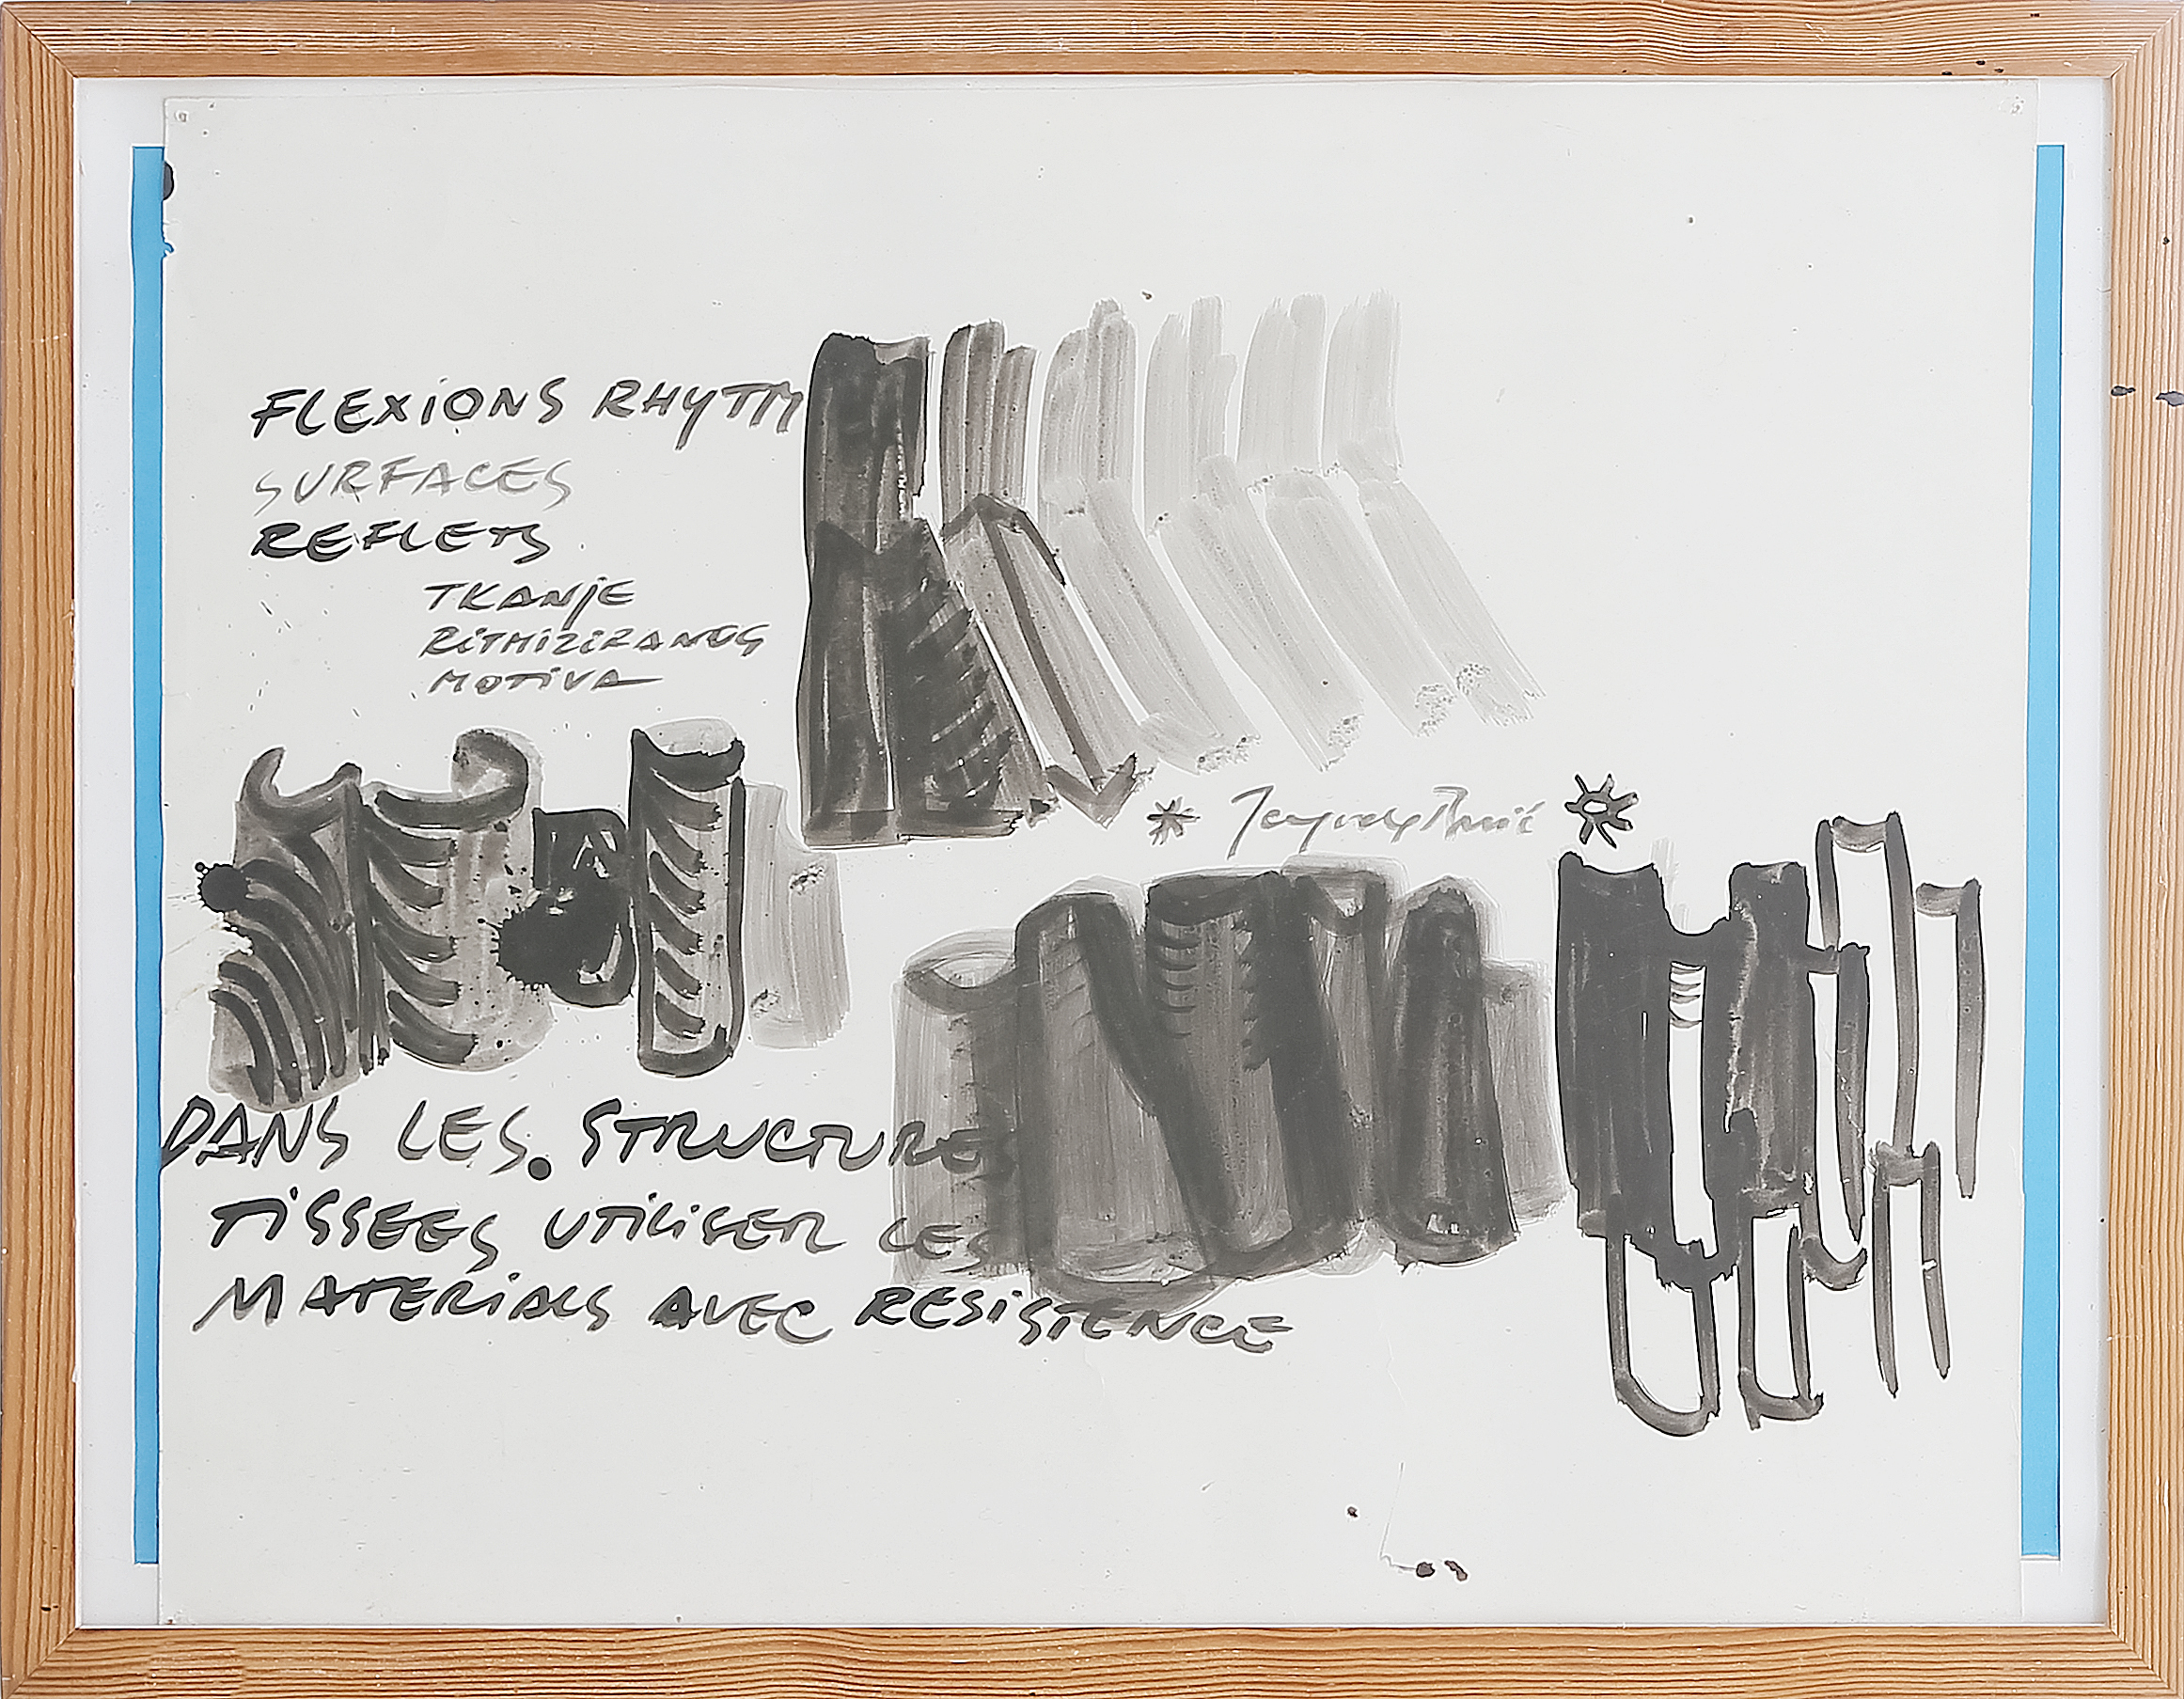 FLEXIONS RHYTM
SURFACES
REFLETS
TKANJE
RITMIZIRANOG
MOTIVA
DANS LES. STRUCTURES
TISSEES UTILISER LES
MATERIALS AVEC RESISTENCE